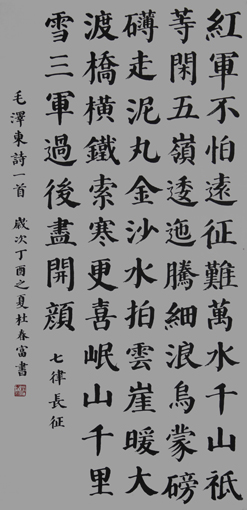 紅軍不怕遠征難萬水千山祗
等閑五嶺逶迤騰細浪烏蒙磅
礴走泥丸金沙水拍雲崖暖大
渡橋橫鐵索寒更喜岷山千里
雪三軍過後盡開顏 七律長征
毛澤東詩一首 歲次丁酉之夏杜春富書